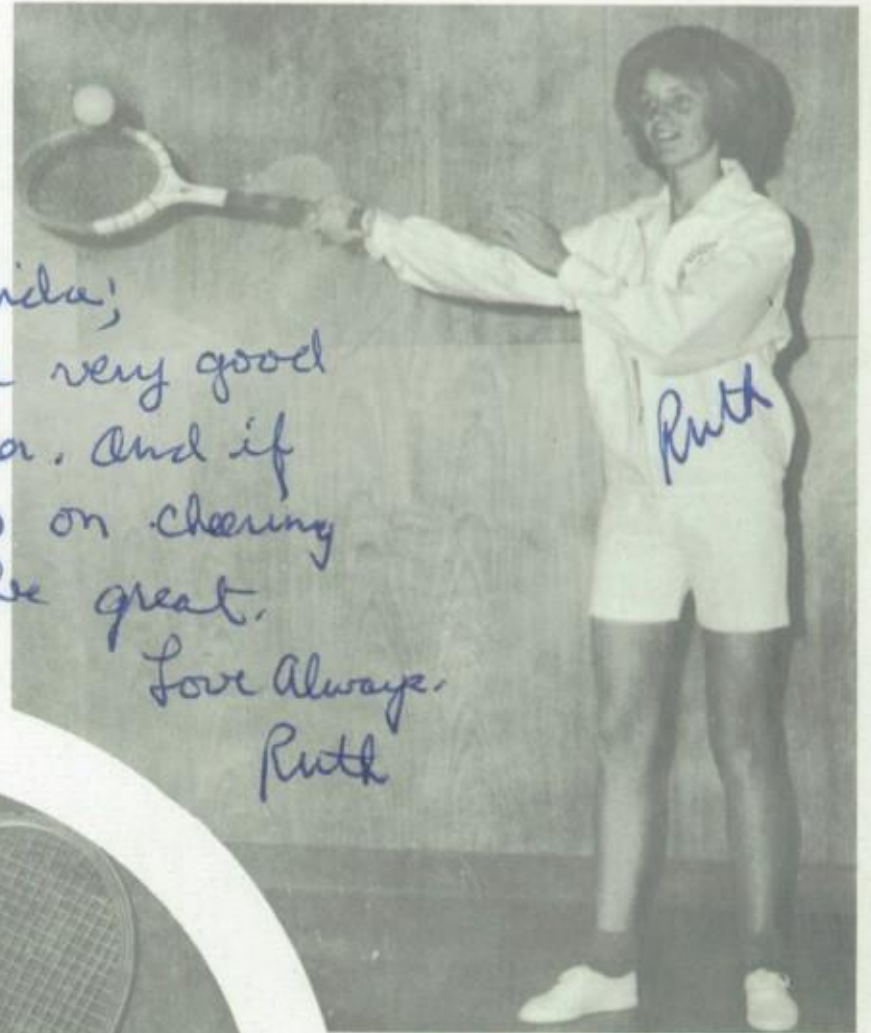 very good
And if
on cheering
be great.
Love Always.
Ruth
Ruth